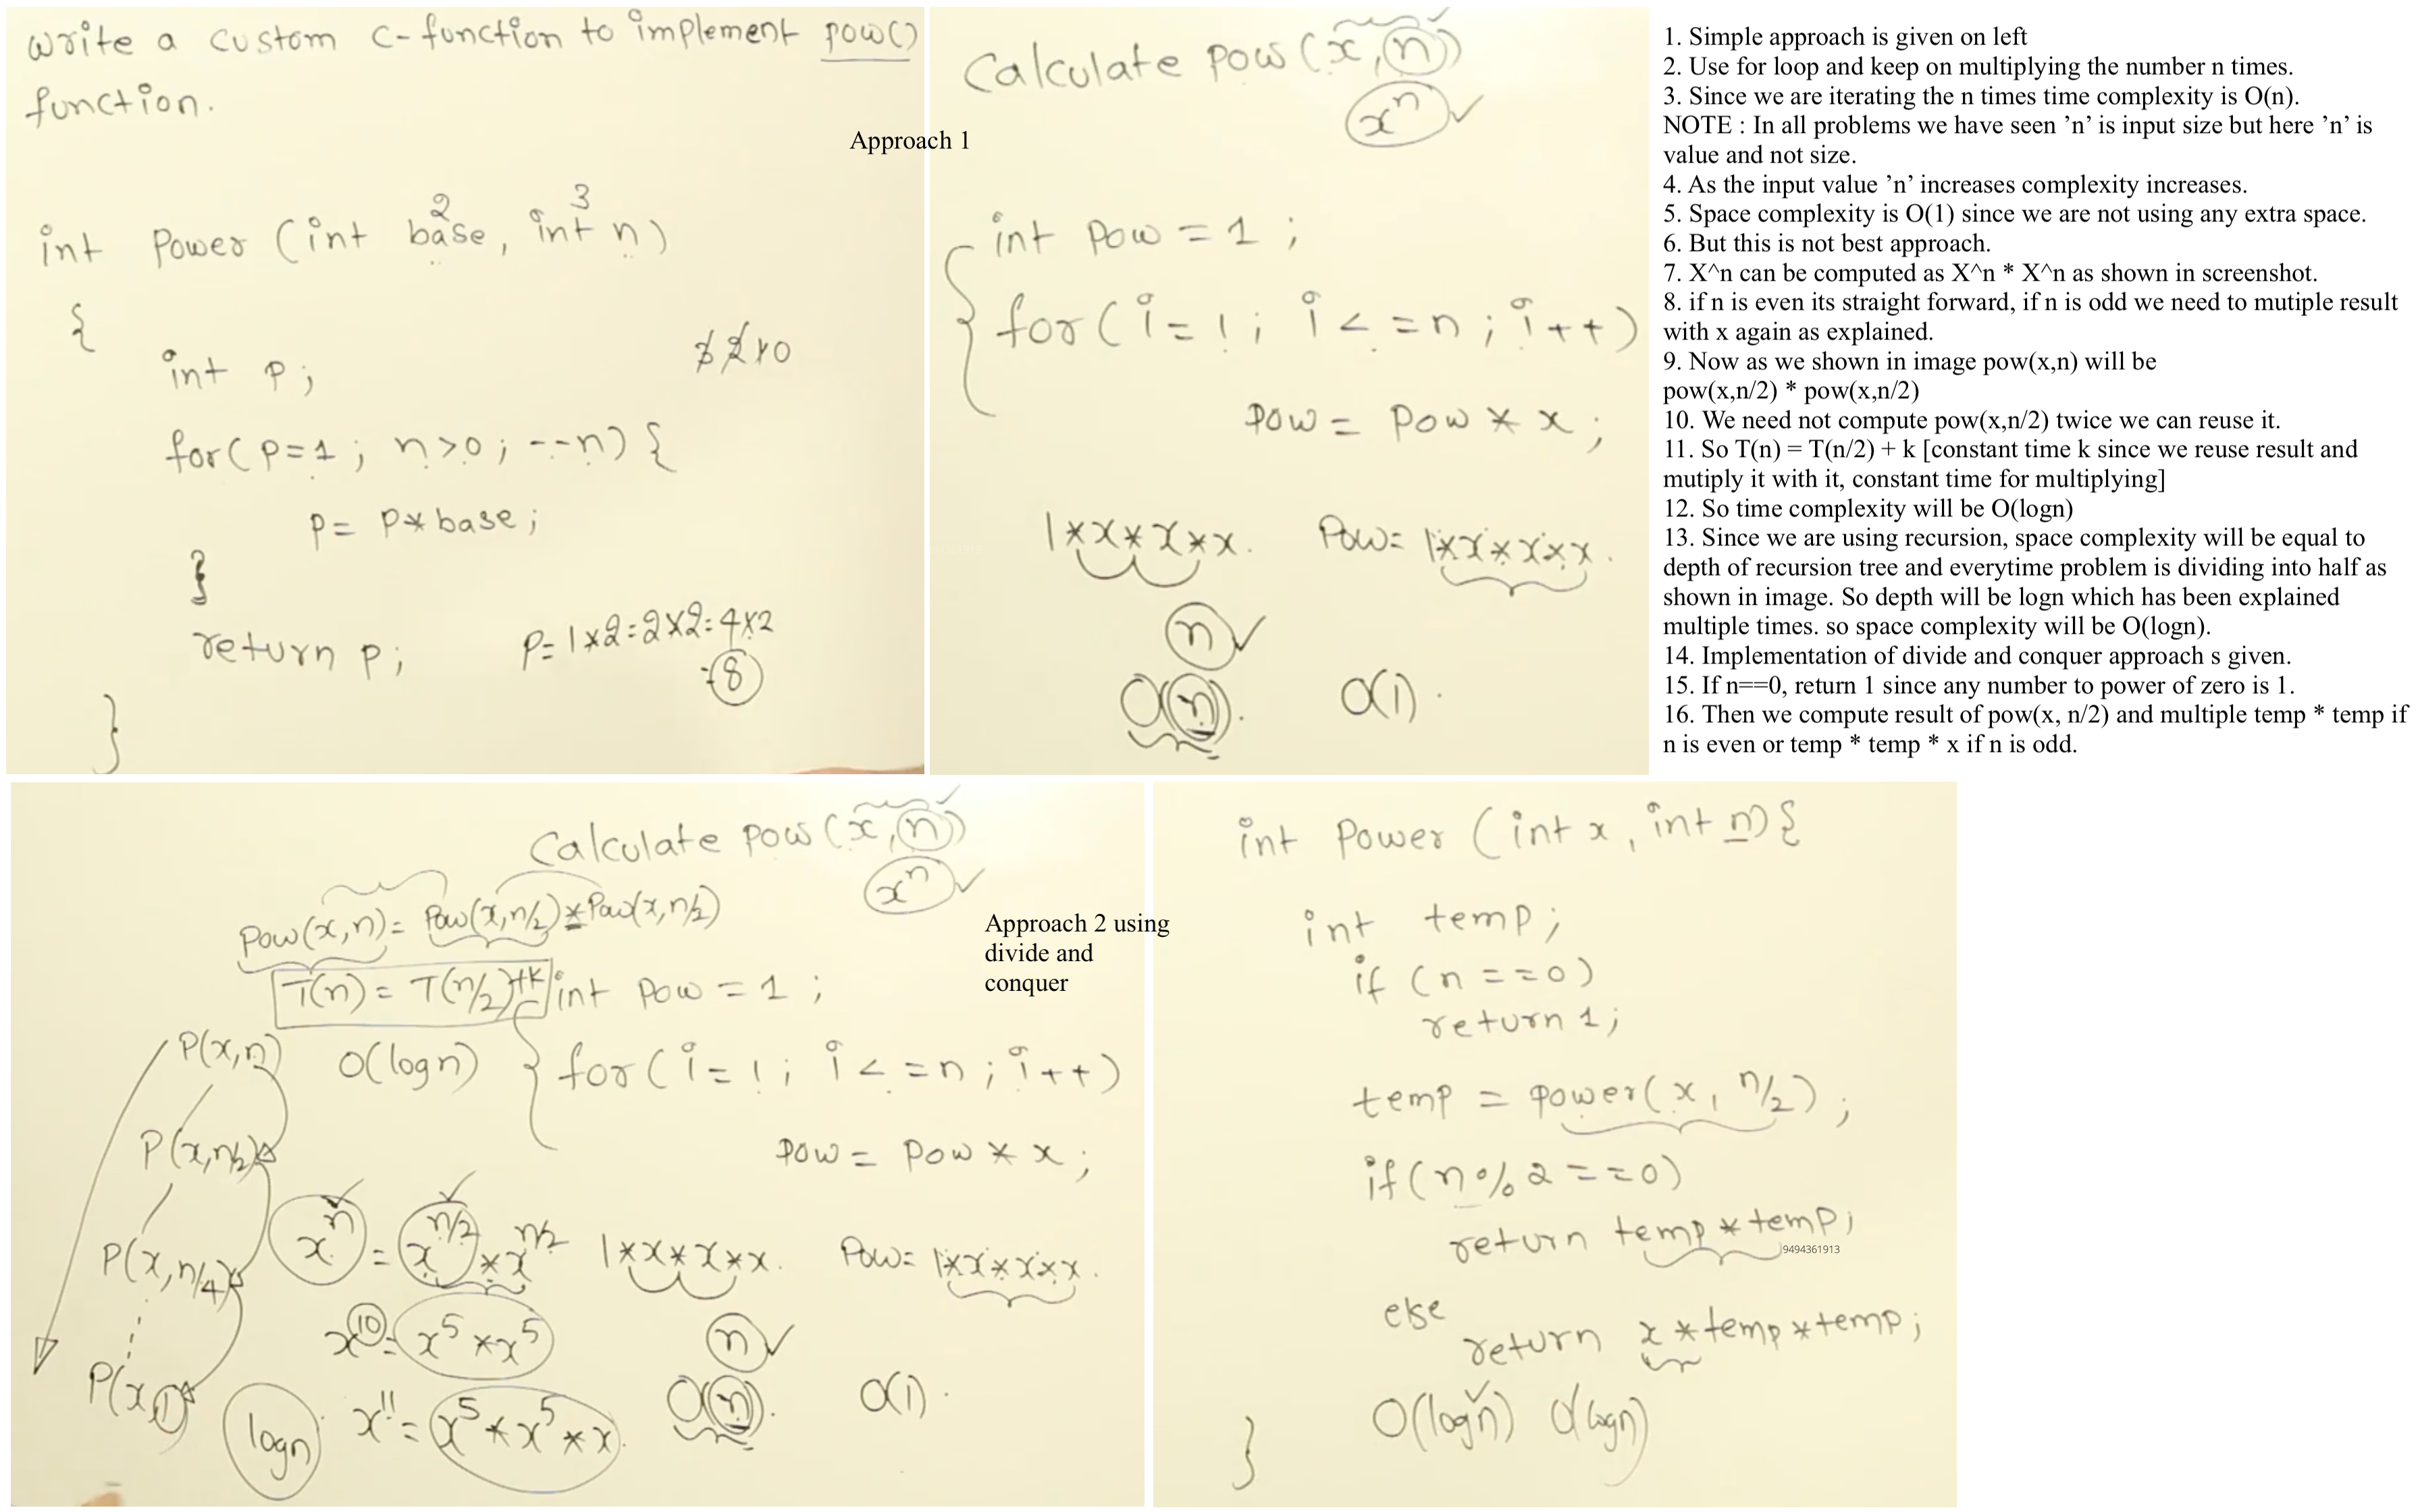 write a custom c-function to implement pow()
function.
int Power (int base, int n)
2 3
{
int p;
3 2 1 0
for(p=1; n>0; --n) {
p= p*base;
}
return p;
p= 1×2=2×2=4×2
=8
}
Approach 1
Calculate pow(x,n)
xⁿ
int pow = 1 ;
for( i=1; i <=n; i++)
pow = pow * x ;
1*x*x*x. Pow= 1*x*x*x*x.
n
O(n). O(1).
1. Simple approach is given on left
2. Use for loop and keep on multiplying the number n times.
3. Since we are iterating the n times time complexity is O(n).
NOTE : In all problems we have seen ’n’ is input size but here ’n’ is
value and not size.
4. As the input value ’n’ increases complexity increases.
5. Space complexity is O(1) since we are not using any extra space.
6. But this is not best approach.
7. X^n can be computed as X^n * X^n as shown in screenshot.
8. if n is even its straight forward, if n is odd we need to mutiple result
with x again as explained.
9. Now as we shown in image pow(x,n) will be
pow(x,n/2) * pow(x,n/2)
10. We need not compute pow(x,n/2) twice we can reuse it.
11. So T(n) = T(n/2) + k [constant time k since we reuse result and
mutiply it with it, constant time for multiplying]
12. So time complexity will be O(logn)
13. Since we are using recursion, space complexity will be equal to
depth of recursion tree and everytime problem is dividing into half as
shown in image. So depth will be logn which has been explained
multiple times. so space complexity will be O(logn).
14. Implementation of divide and conquer approach s given.
15. If n==0, return 1 since any number to power of zero is 1.
16. Then we compute result of pow(x, n/2) and multiple temp * temp if
n is even or temp * temp * x if n is odd.
Calculate pow(x,n)
xⁿ
Pow(x,n)= Pow(x,n/2)*Pow(x,n/2)
Approach 2 using
divide and
conquer
T(n) = T(n/2)+k
int pow = 1 ;
P(x,n)
O(logn)
for( i=1; i <=n; i++)
P(x,n/2)
pow = pow * x ;
P(x,n/4)
xⁿ = x^n/2 * x^n/2
1*x*x*x. Pow= 1*x*x*x*x.
x¹⁰= x⁵ *x⁵
n
P(x,1)
logn
x¹¹= x⁵*x⁵*x.
O(n). O(1).
int Power (int x, int n) {
int temp;
if (n ==0)
return 1;
temp = power(x, n/2);
if(n%2==0)
return temp*temp;
9494361913
else
return x*temp*temp;
O(logn) O(logn)
}